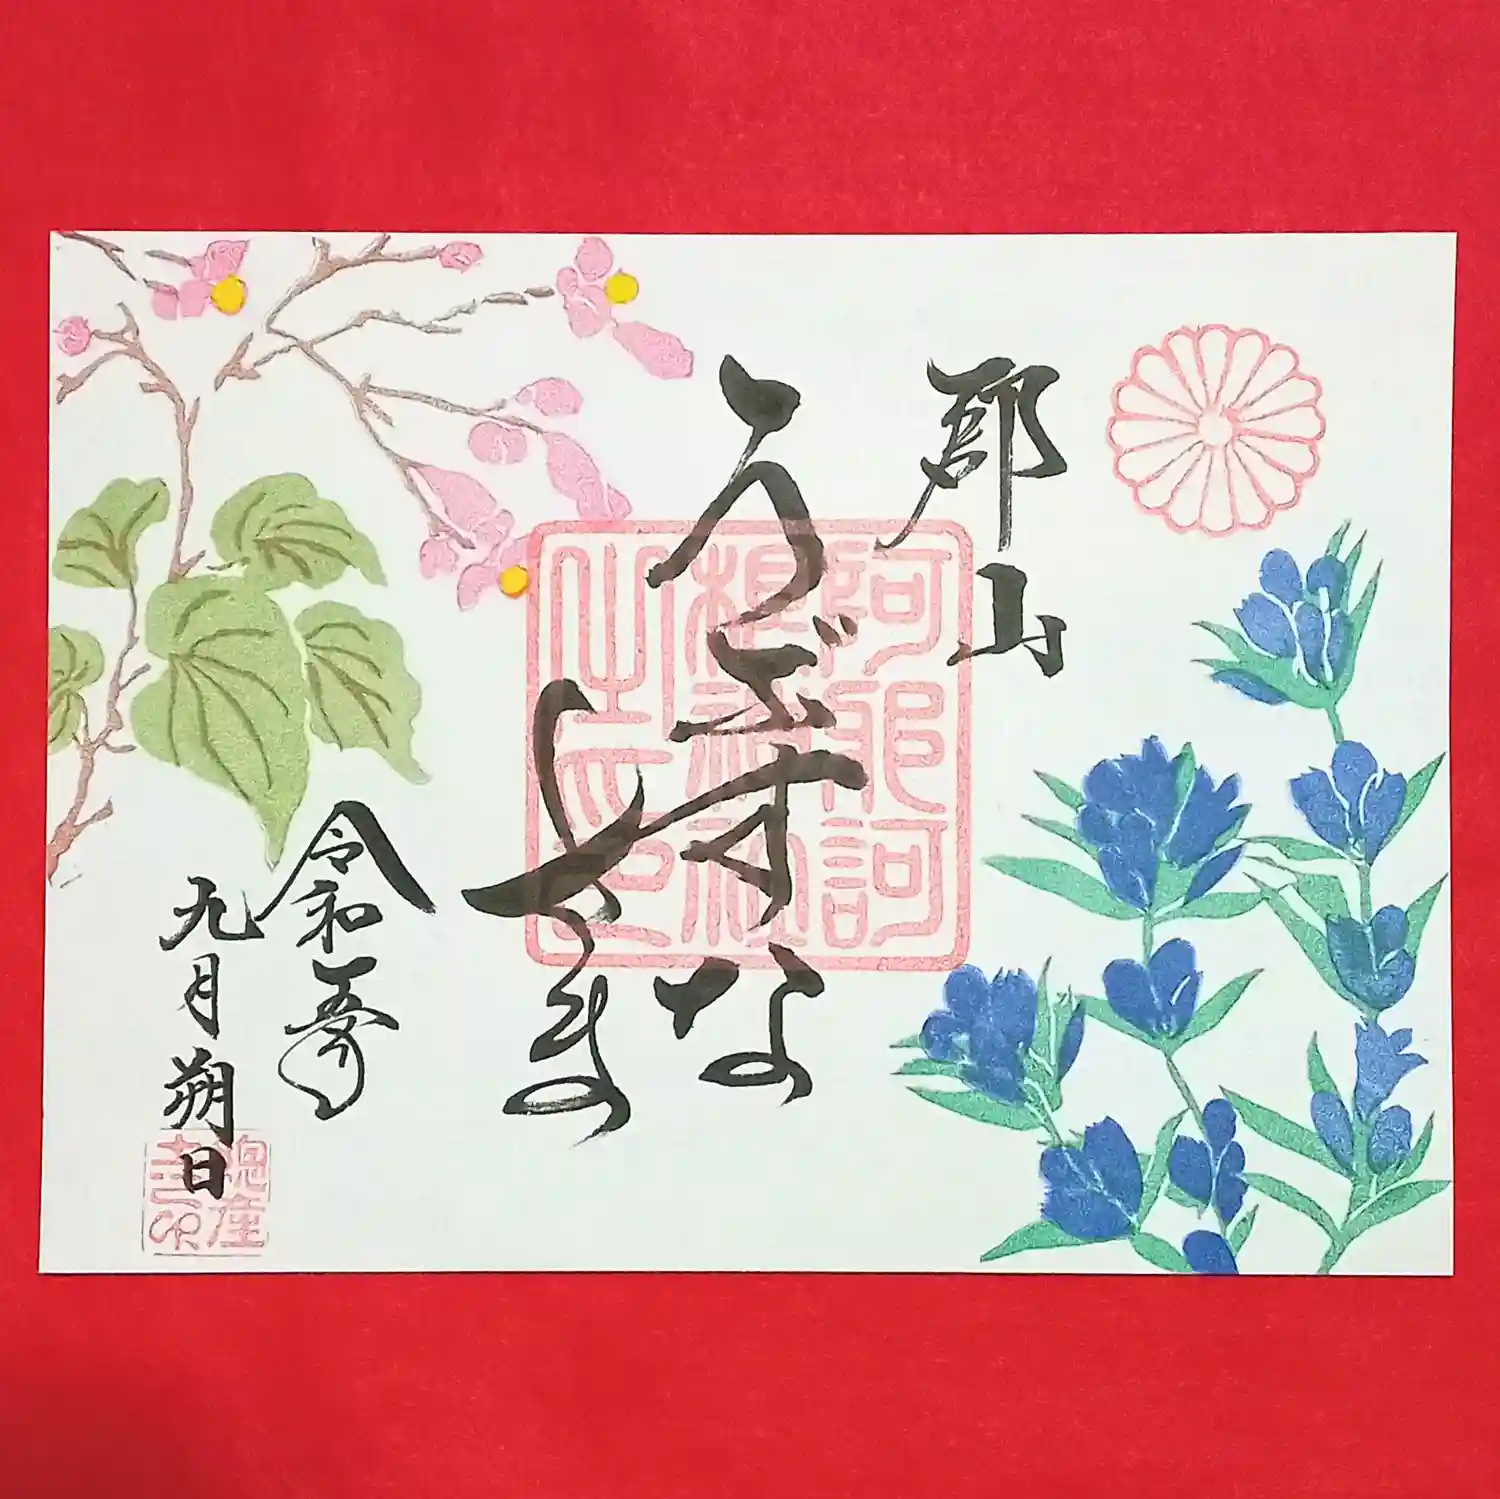 郡山
うぶすな
さま
阿邪訶
根神社
令和五年
九月朔日